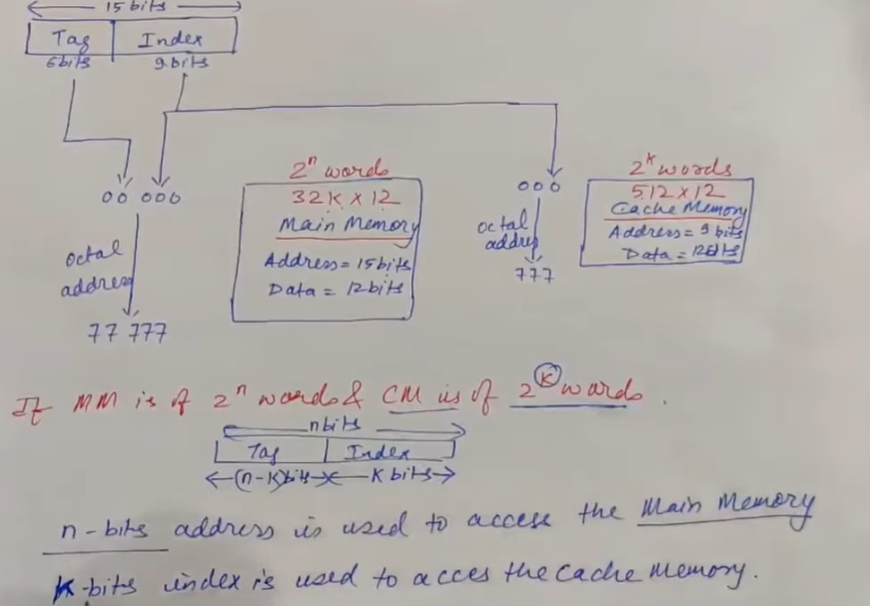 15 bits
Tag Index
6bits 9bits
00 000
octal
address
77 777
2ⁿ words
32K x 12
Main Memory
Address = 15bits
Data = 12bits
000
octal
addres
777
2ᵏ words
512 x 12
Cache Memory
Address = 9 bits
Data = 12bits
If MM is of 2ⁿ words & CM is of 2ᵏ words.
n bits
Tag Index
(n-k)bits k bits
n-bits address is used to access the Main Memory
k-bits index is used to acces the cache memory.